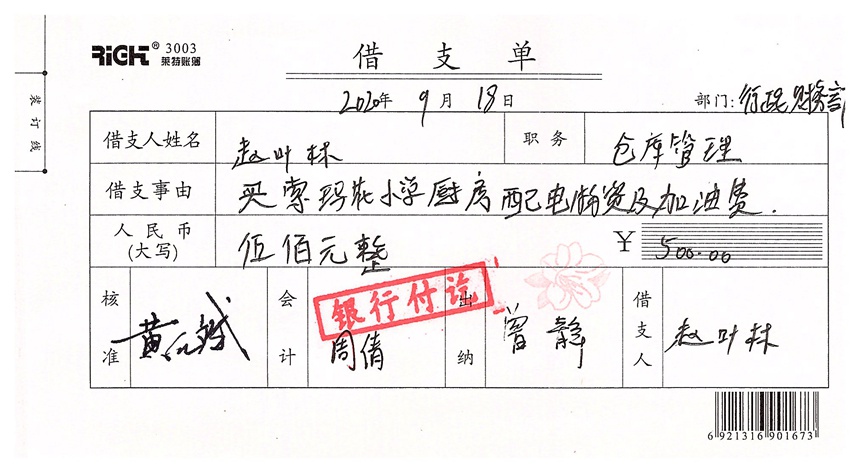 RIGHT® 3003
莱特账簿
借支单
2020年 9月 18日
部门: 行政财务部
装订线
借支人姓名 赵叶林 职务 仓库管理
借支事由 买索玛花小学厨房配电物资及加油费.
人民币(大写) 伍佰元整 ¥ 500.00
核准 黄 会计 周倩 出纳 曾静 借支人 赵叶林
银行付讫
6 921316 901673